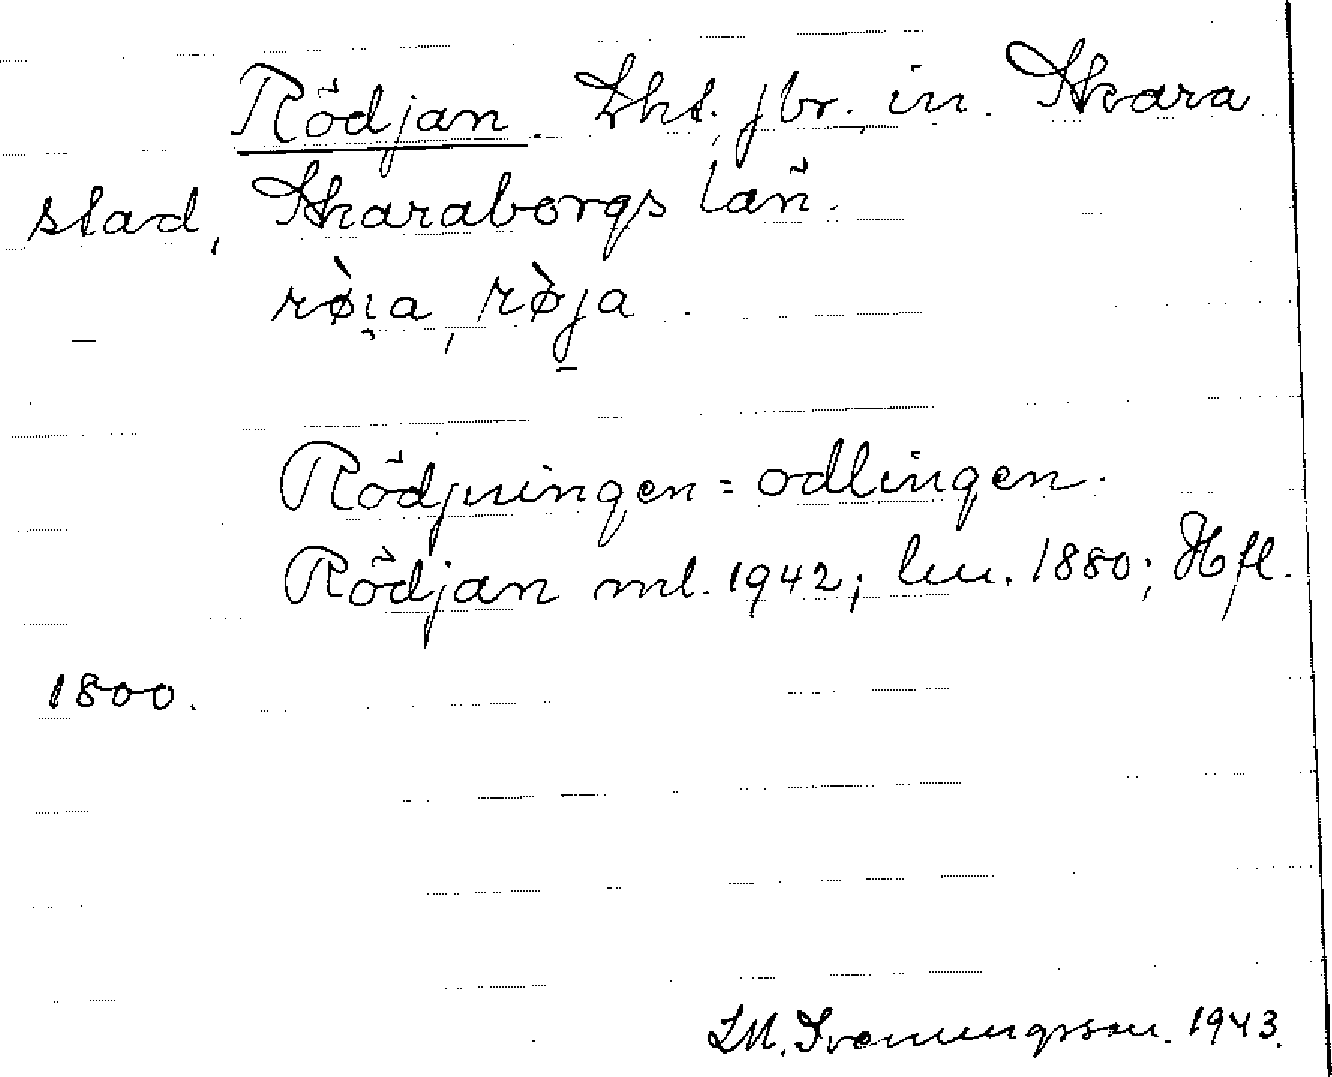 Rödjan. Lht. jbr. in. Skara
stad, Skaraborgs län.
rø̀i̯a, rø̀ja
Rödjningen = odlingen.
Rödjan ml. 1942; lm. 1880; Hfl.
1800.
LM. Svenungsson. 1943.